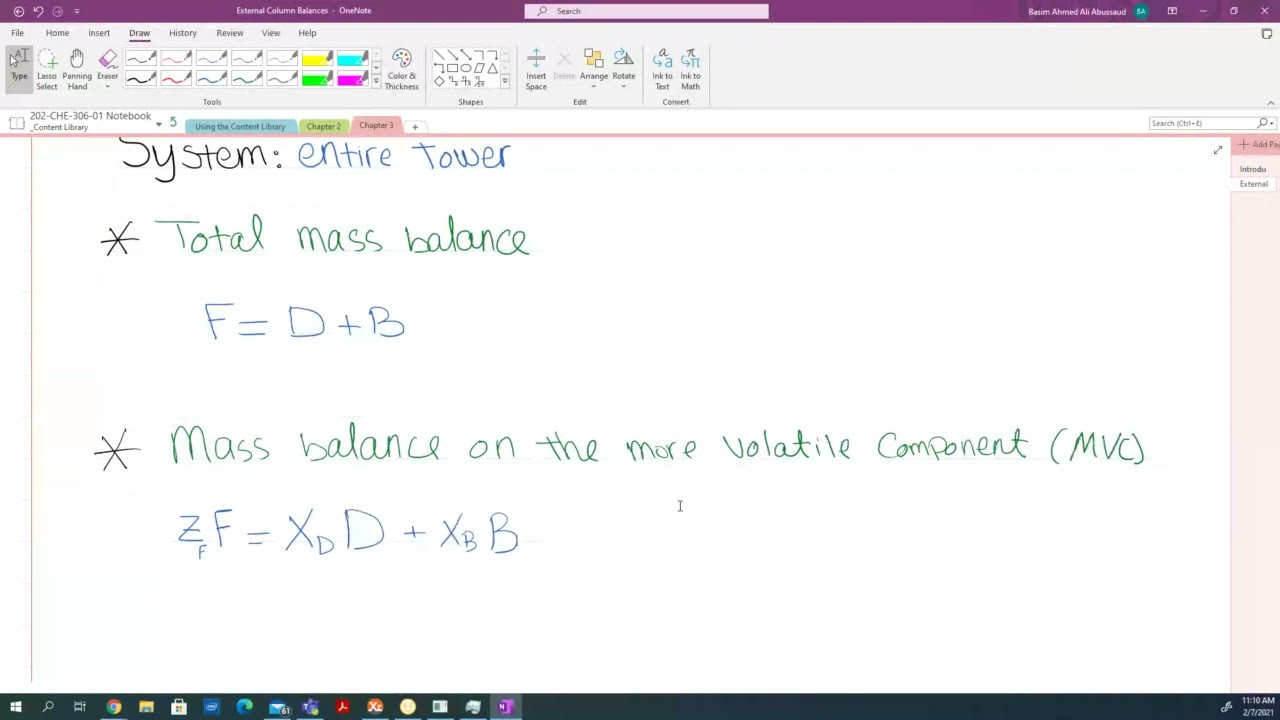 External Column Balances - OneNote
Search
Basim Ahmed Ali Abussaud BA
File Home Insert Draw History Review View Help
Type
Lasso Select
Panning Hand
Eraser
Color & Thickness
Insert Space
Delete
Arrange
Rotate
Ink to Text
Ink to Math
Tools
Shapes
Edit
Convert
202-CHE-306-01 Notebook
_Content Library
5
Using the Content Library
Chapter 2
Chapter 3
+
Search (Ctrl+E)
Add Pa
Introdu
External
System: entire Tower
* Total mass balance
F = D + B
* Mass balance on the more volatile component (MVC)
z_F F = X_D D + X_B B
61
11:10 AM
2/7/2021